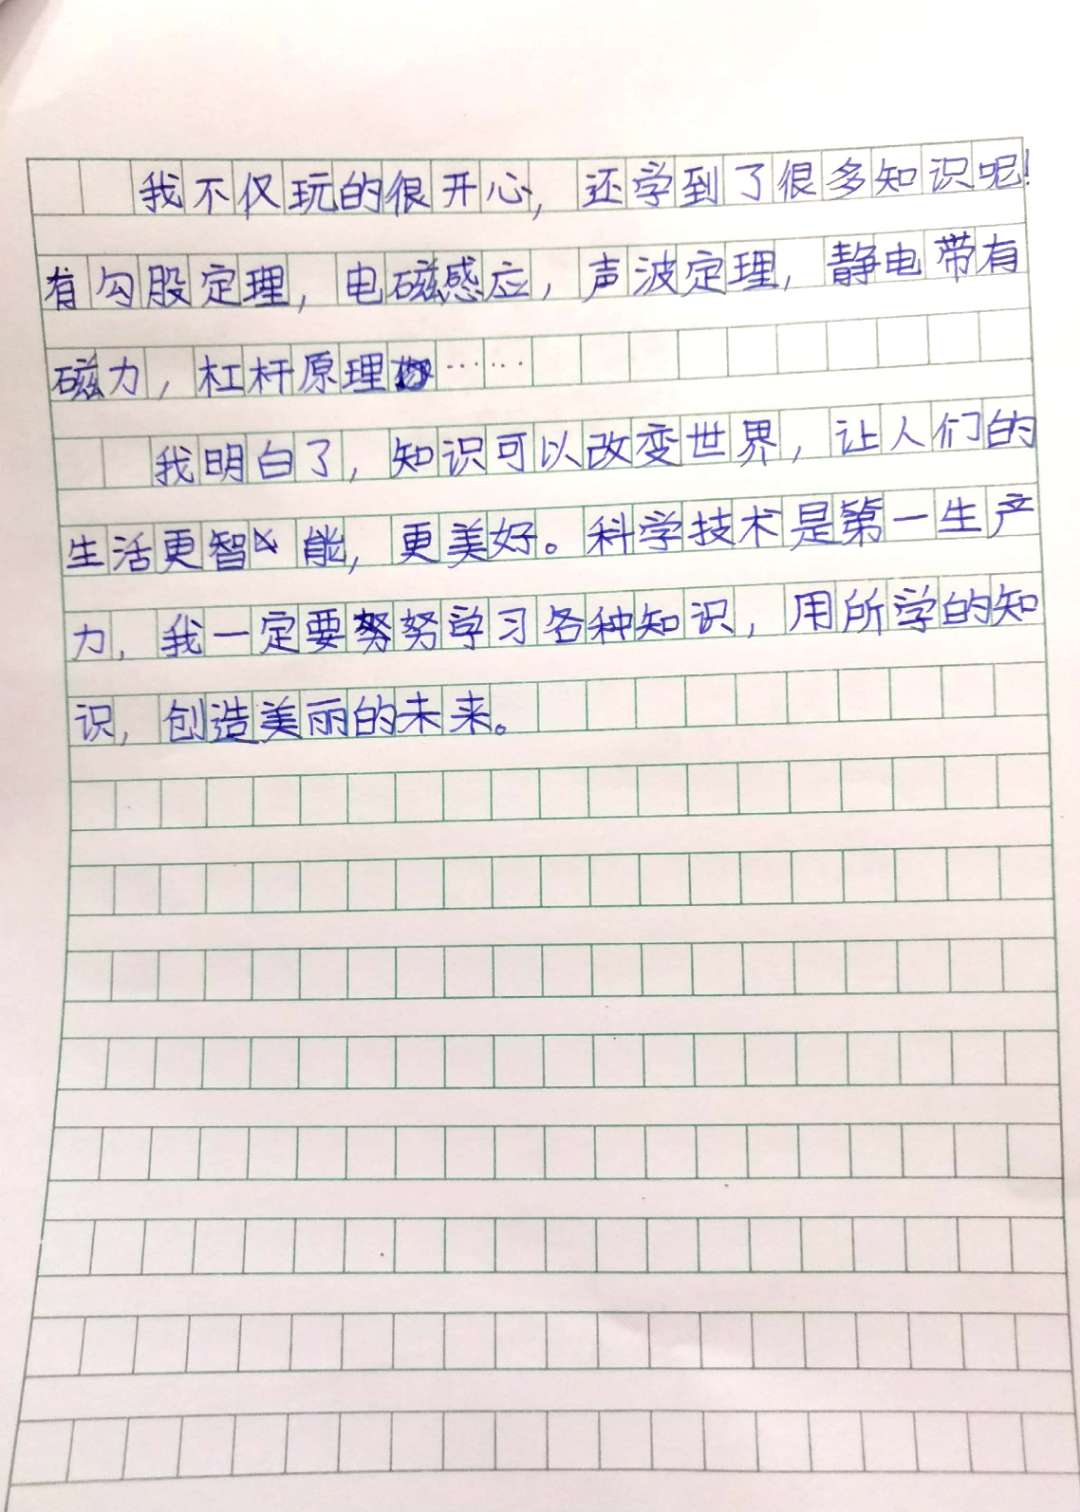 我不仅玩的很开心，还学到了很多知识呢！
有勾股定理，电磁感应，声波定理，静电带有
磁力，杠杆原理……
我明白了，知识可以改变世界，让人们的
生活更智能，更美好。科学技术是第一生产
力，我一定要努努学习各种知识，用所学的知
识，创造美丽的未来。